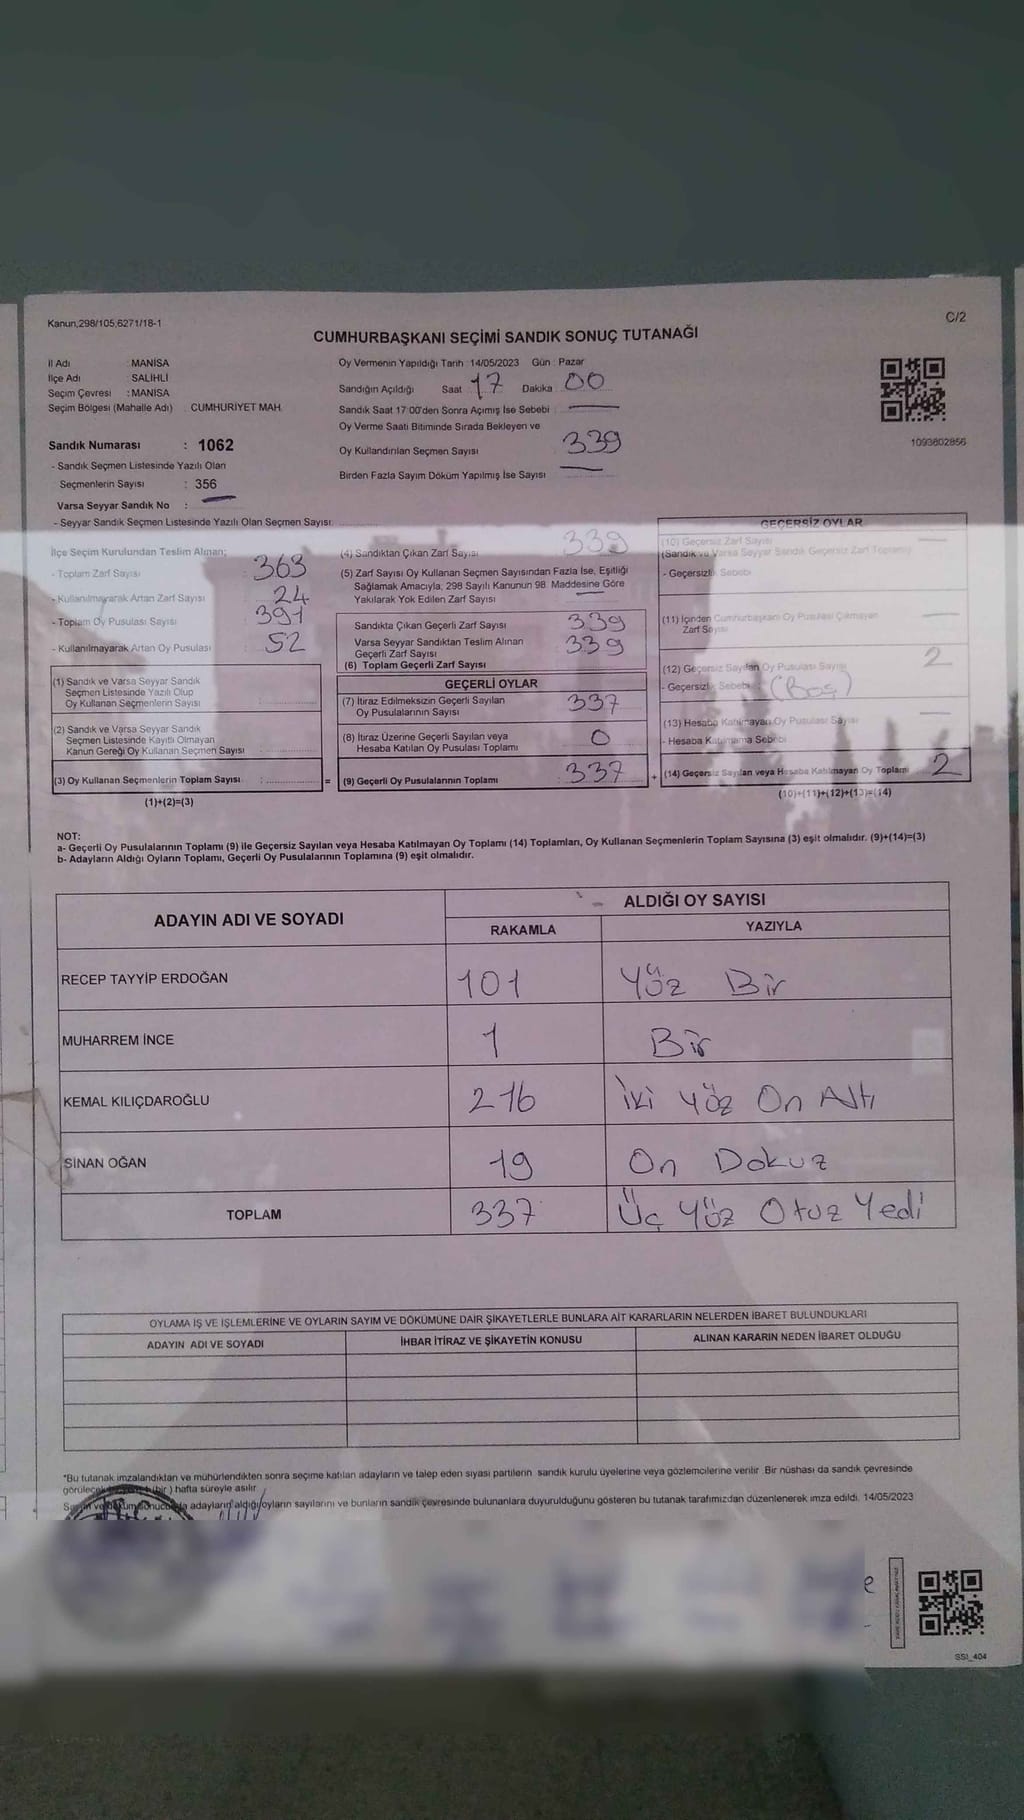 Kanun,298/105,6271/18-1
C/2
CUMHURBAŞKANI SEÇİMİ SANDIK SONUÇ TUTANAĞI
İl Adı : MANİSA
İlçe Adı : SALİHLİ
Seçim Çevresi : MANİSA
Seçim Bölgesi (Mahalle Adı) CUMHURİYET MAH.
Sandık Numarası : 1062
- Sandık Seçmen Listesinde Yazılı Olan
Seçmenlerin Sayısı : 356
Varsa Seyyar Sandık No :
- Seyyar Sandık Seçmen Listesinde Yazılı Olan Seçmen Sayısı:
Oy Vermenin Yapıldığı Tarih : 14/05/2023 Gün : Pazar
Sandığın Açıldığı Saat : 17 Dakika : 00
Sandık Saat 17:00'den Sonra Açımış İse Sebebi
Oy Verme Saati Bitiminde Sırada Bekleyen ve
Oy Kullandırılan Seçmen Sayısı 339
Birden Fazla Sayım Döküm Yapılmış İse Sayısı
1093802856
İlçe Seçim Kurulundan Teslim Alınan;
- Toplam Zarf Sayısı : 363
- Kullanılmayarak Artan Zarf Sayısı : 24
- Toplam Oy Pusulası Sayısı : 391
- Kullanılmayarak Artan Oy Pusulası : 52
(1) Sandık ve Varsa Seyyar Sandık
Seçmen Listesinde Yazılı Olup
Oy Kullanan Seçmenlerin Sayısı
(2) Sandık ve Varsa Seyyar Sandık
Seçmen Listesinde Kayıtlı Olmayan
Kanun Gereği Oy Kullanan Seçmen Sayısı
(3) Oy Kullanan Seçmenlerin Toplam Sayısı : =
(1)+(2)=(3)
(4) Sandıktan Çıkan Zarf Sayısı 339
(5) Zarf Sayısı Oy Kullanan Seçmen Sayısından Fazla İse, Eşitliği
Sağlamak Amacıyla, 298 Sayılı Kanunun 98. Maddesine Göre
Yakılarak Yok Edilen Zarf Sayısı
Sandıkta Çıkan Geçerli Zarf Sayısı 339
Varsa Seyyar Sandıktan Teslim Alınan
Geçerli Zarf Sayısı 339
(6) Toplam Geçerli Zarf Sayısı
GEÇERLİ OYLAR
(7) İtiraz Edilmeksizin Geçerli Sayılan
Oy Pusulalarının Sayısı 337
(8) İtiraz Üzerine Geçerli Sayılan veya
Hesaba Katılan Oy Pusulası Toplamı 0
(9) Geçerli Oy Pusulalarının Toplamı 337 +
GEÇERSİZ OYLAR
(10) Geçersiz Zarf Sayısı
(Sandık ve Varsa Seyyar Sandık Geçersiz Zarf Toplamı)
- Geçersizlik Sebebi
(11) İçinden Cumhurbaşkanı Oy Pusulası Çıkmayan
Zarf Sayısı
(12) Geçersiz Sayılan Oy Pusulası Sayısı 2
- Geçersizlik Sebebi : (Boş)
(13) Hesaba Katılmayan Oy Pusulası Sayısı
- Hesaba Katılmama Sebebi
(14) Geçersiz Sayılan veya Hesaba Katılmayan Oy Toplamı 2
(10)+(11)+(12)+(13)=(14)
NOT:
a- Geçerli Oy Pusulalarının Toplamı (9) ile Geçersiz Sayılan veya Hesaba Katılmayan Oy Toplamı (14) Toplamları, Oy Kullanan Seçmenlerin Toplam Sayısına (3) eşit olmalıdır. (9)+(14)=(3)
b- Adayların Aldığı Oyların Toplamı, Geçerli Oy Pusulalarının Toplamına (9) eşit olmalıdır.
ADAYIN ADI VE SOYADI
ALDIĞI OY SAYISI
RAKAMLA YAZIYLA
RECEP TAYYİP ERDOĞAN 101 Yüz Bir
MUHARREM İNCE 1 Bir
KEMAL KILIÇDAROĞLU 216 İki Yüz On Altı
SİNAN OĞAN 19 On Dokuz
TOPLAM 337 Üç Yüz Otuz Yedi
OYLAMA İŞ VE İŞLEMLERİNE VE OYLARIN SAYIM VE DÖKÜMÜNE DAİR ŞİKAYETLERLE BUNLARA AİT KARARLARIN NELERDEN İBARET BULUNDUKLARI
ADAYIN ADI VE SOYADI İHBAR İTİRAZ VE ŞİKAYETİN KONUSU ALINAN KARARIN NEDEN İBARET OLDUĞU
*Bu tutanak imzalandıktan ve mühürlendikten sonra seçime katılan adayların ve talep eden siyasi partilerin sandık kurulu üyelerine veya gözlemcilerine verilir. Bir nüshası da sandık çevresinde
görülecek bir ) hafta süreyle asılır.
adayların aldığı oyların sayılarını ve bunların sandık çevresinde bulunanlara duyurulduğunu gösteren bu tutanak tarafımızdan düzenlenerek imza edildi. 14/05/2023
SSI_404